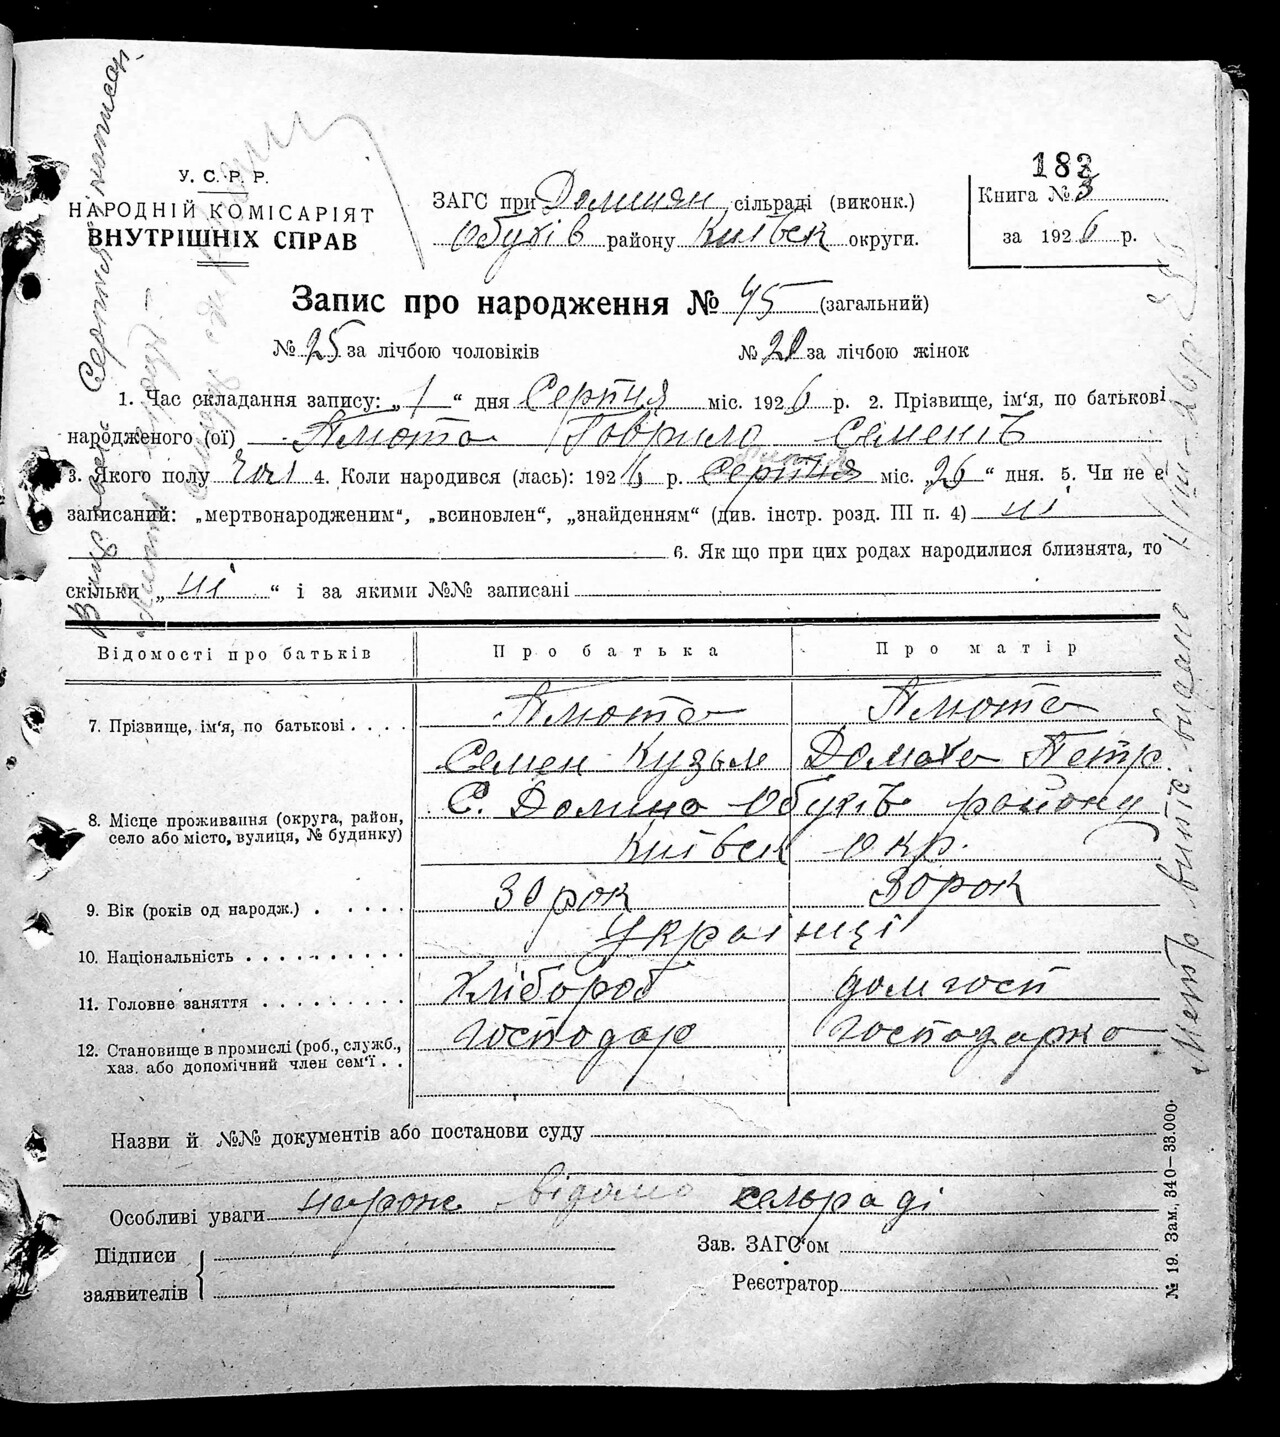 183
У. С. Р. Р.
НАРОДНІЙ КОМІСАРІЯТ
ВНУТРІШНІХ СПРАВ
ЗАГС при Долинян сільраді (виконк.)
Обухів району Київськ округи.
Книга № 3
за 1926 р.
Запис про народження № 45 (загальний)
№ 25 за лічбою чоловіків № 20 за лічбою жінок
1. Час складання запису: „ 1 “ дня Серпня міс. 1926 р. 2. Прізвище, ім‘я, по батькові
народженого (ої) Плюта Гаврило Семенів
3. Якого полу чол 4. Коли народився (лась): 1926 р. Серпня міс. „26“ дня. 5. Чи не є
записаний: „мертвонародженим“, „всиновлен“, „знайденням“ (див. інстр. розд. III п. 4) ні
6. Як що при цих родах народилися близнята, то
скільки „ ні “ і за якими №№ записані
Відомості про батьків Про батька Про матір
7. Прізвище, ім‘я, по батькові . . . . Плюта Плюта
Семен Кузьм Домаха Петр
8. Місце проживання (округа, район, село або місто, вулиця, № будинку) С. Долина Обухів району
Київськ окр.
9. Вік (років од народж.) . . . . . 30 рок 30 рок
10. Національність . . . . . . . . . . Українці
11. Головне заняття . . . . . . . . . Хлібороб дом госп
12. Становище в промислі (роб., служб., хаз. або допомічний член сем‘ї . . Господар Господарка
Назви й №№ документів або постанови суду
Особливі уваги народж відомо сельраді
Підписи
заявителів
Зав. ЗАГС‘ом
Реєстратор
№ 19. Зам, 340—38.000.
Серпня написан.
Метр. витяг. видане